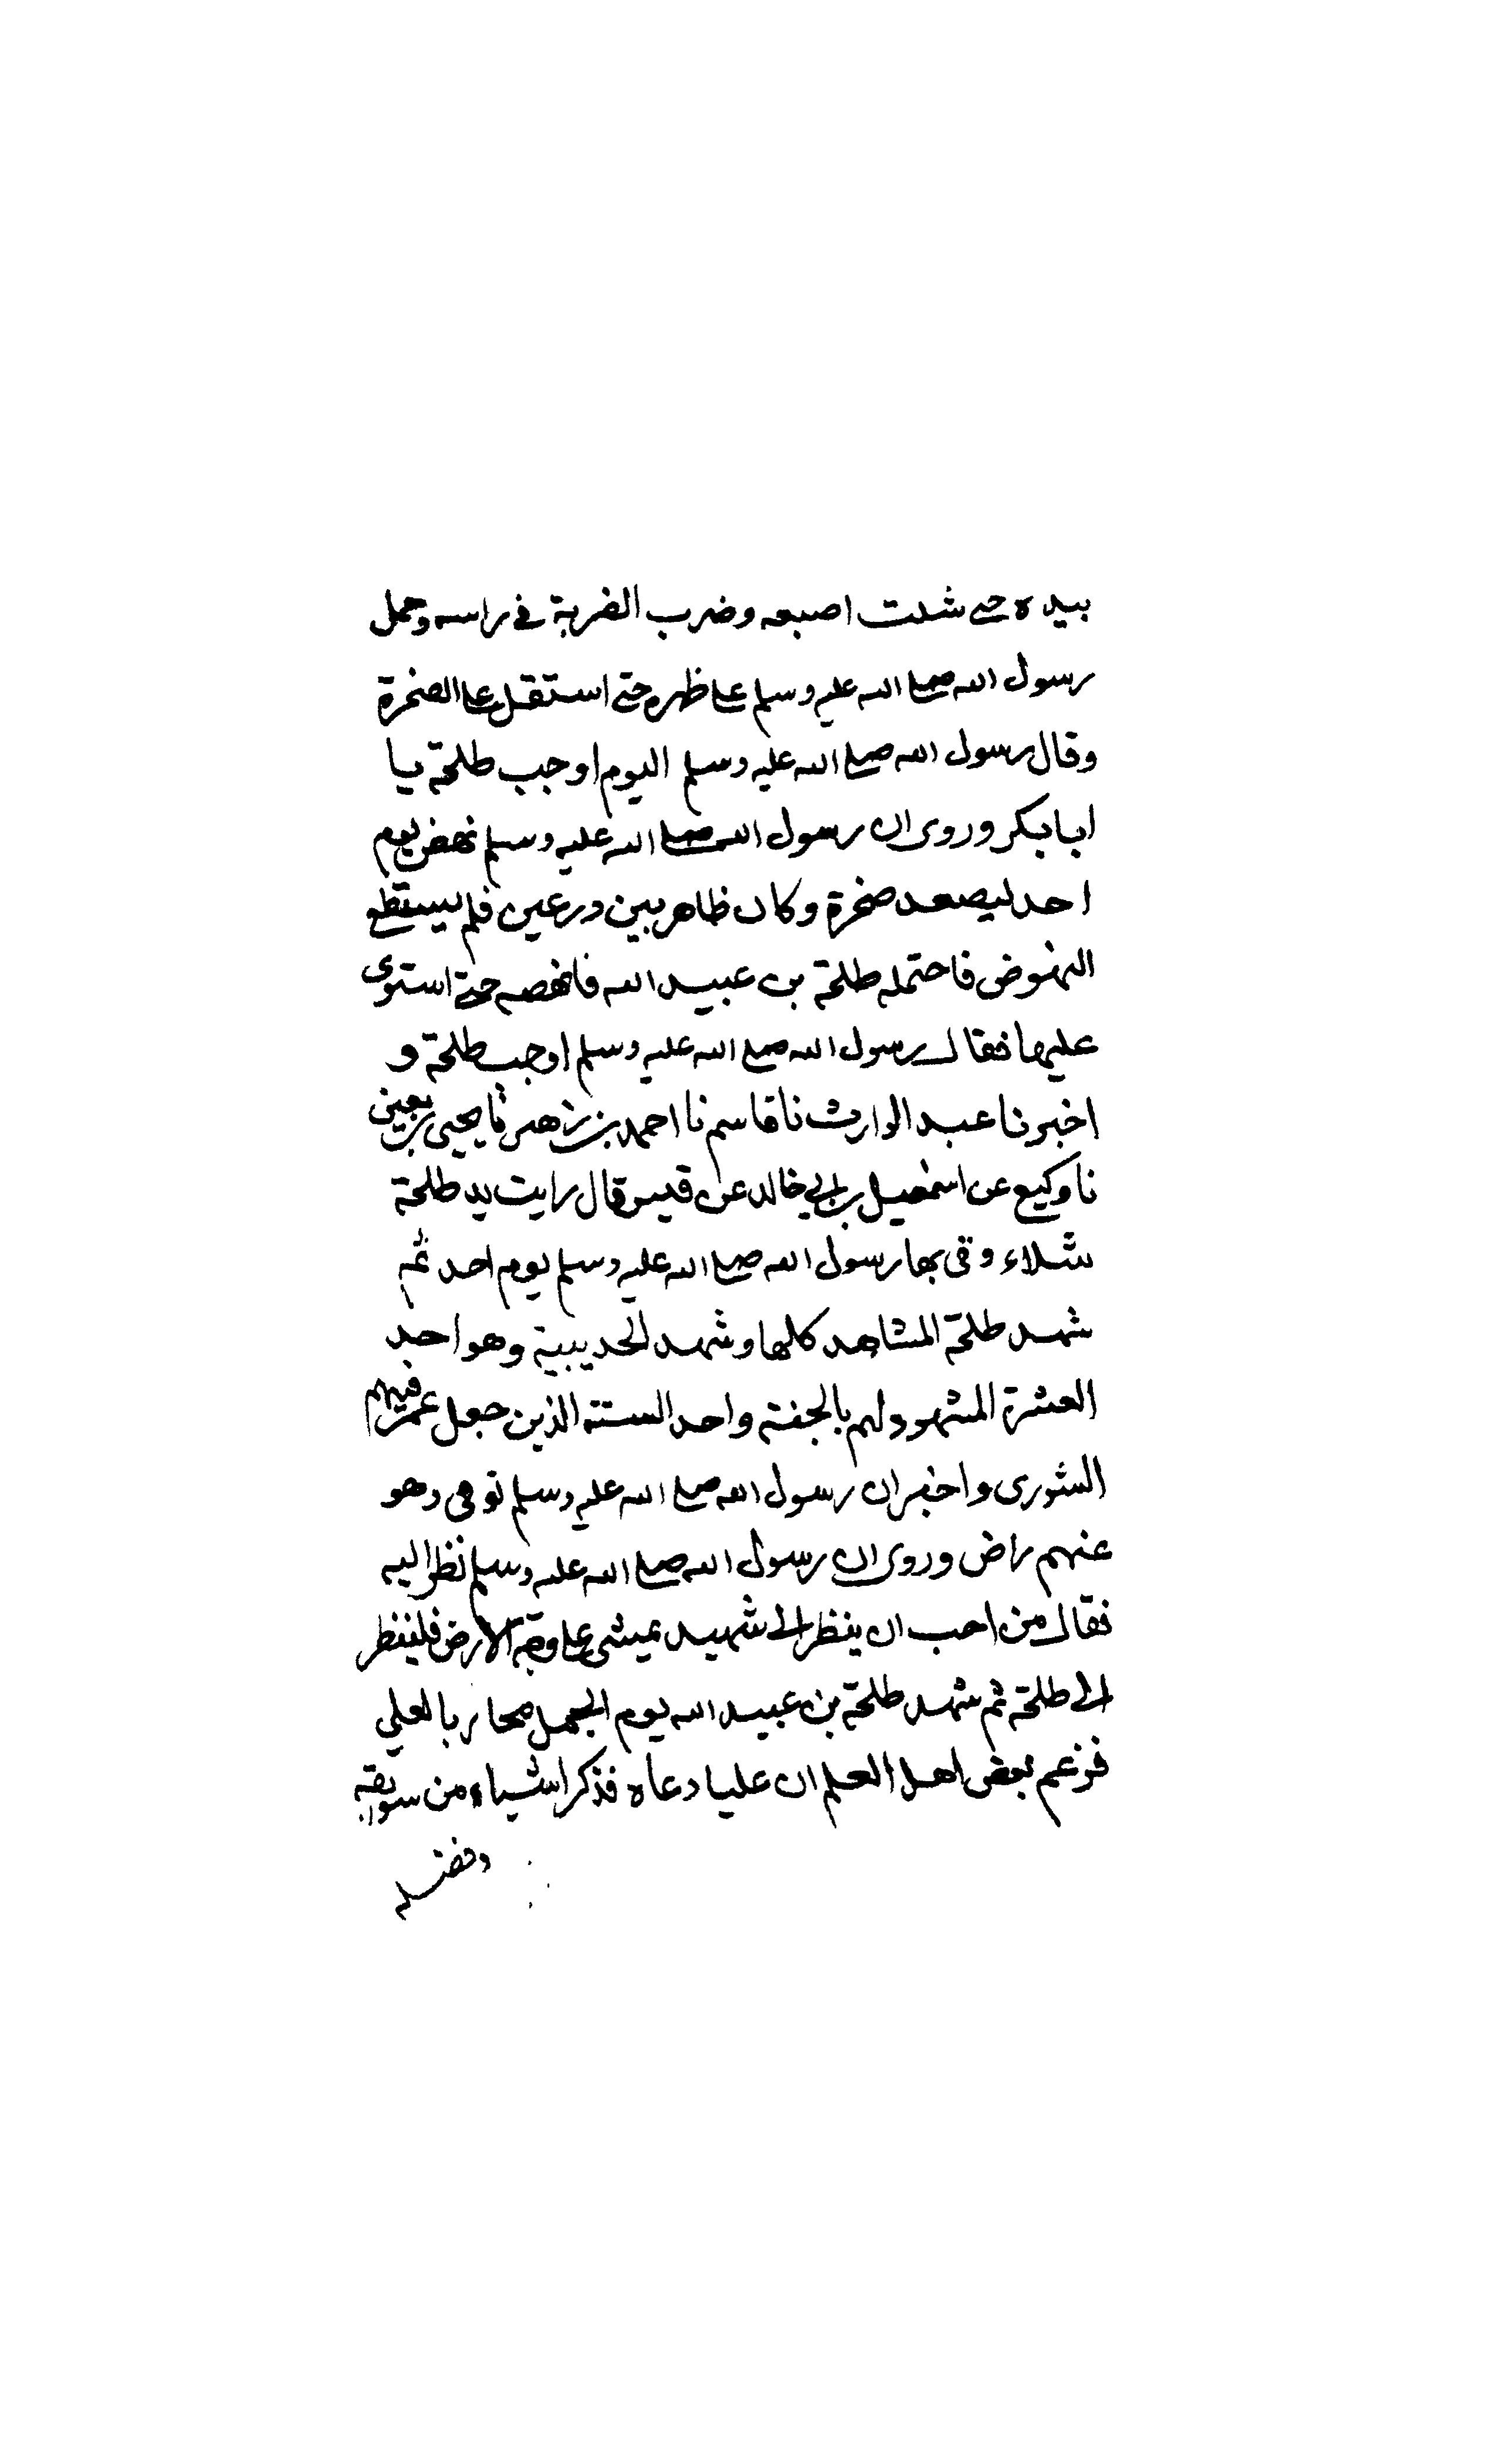 بيده حتى شلت اصبعه وضرب الضربة في راسه وحمل
رسول الله صلى الله عليه وسلم على ظهره حتى استقل على الصخرة
وقال رسول الله صلى الله عليه وسلم اليوم اوجب طلحة يا
ابا بكر وروى ان رسول الله صلى الله عليه وسلم نهض يوم
احد ليصعد صخرة وكان ظاهر بين درعين فلم يستطع
النهوض فاحتمله طلحة بن عبيد الله فانهضه حتى استوى
عليها فقال رسول الله صلى الله عليه وسلم اوجب طلحة و
اخبرنا عبد الوارث نا قاسم نا احمد بن زهير نا يحيى بن معين
نا وكيع عن اسمعيل بن ابي خالد عن قيس قال رايت يد طلحة
شلاء وقى بها رسول الله صلى الله عليه وسلم يوم احد ثم
شهد طلحة المشاهد كلها وشهد الحديبية وهو احد
العشرة المشهود لهم بالجنة واحد الستة الذين جعل عمر فيهم
الشورى واخبر ان رسول الله صلى الله عليه وسلم توفى وهو
عنهم راض وروى ان رسول الله صلى الله عليه وسلم نظر اليه
فقال من احب ان ينظر الى شهيد يمشى على وجه الارض فلينظر
الى طلحة ثم شهد طلحة بن عبيد الله يوم الجمل محاربا لعلي
فزعم بعض اهل العلم ان عليا دعاه فذكر اشياء من سوابقه
وفضله